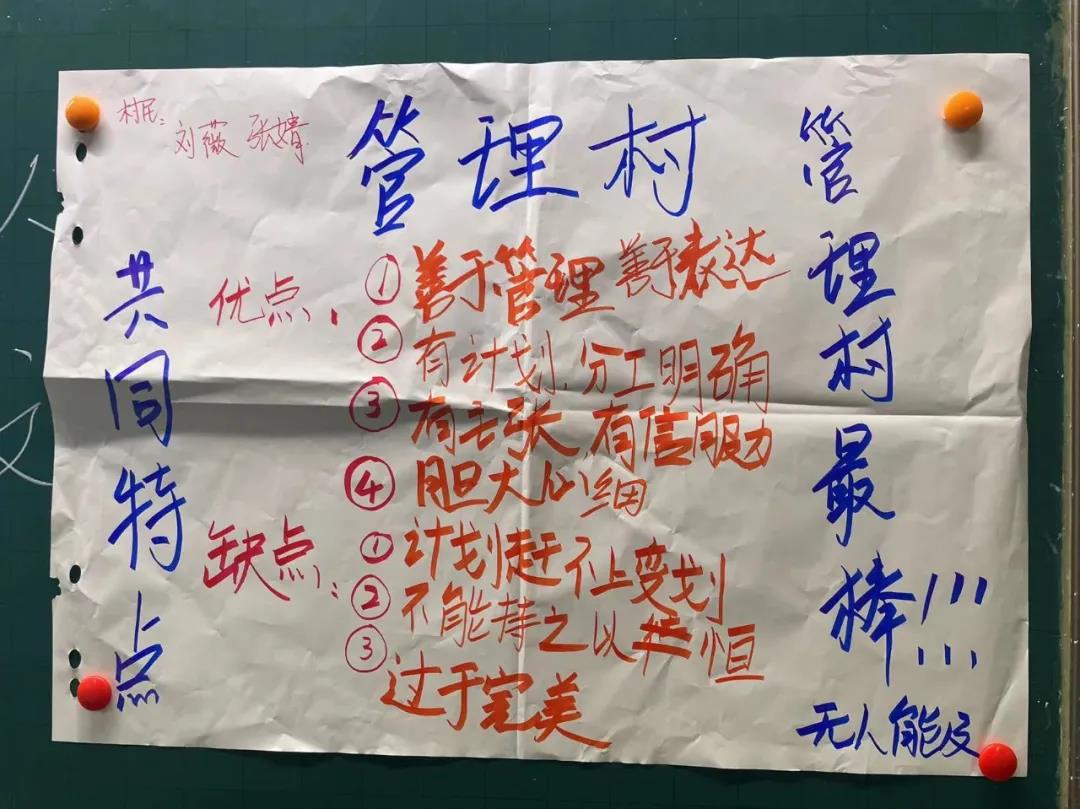 村民：
刘薇 张婧
管理村
共同特点
优点：
①善于管理 善于表达
②有计划、分工明确
③有主张、有信服力
④胆大心细
缺点：
①计划赶不上变划
②不能持之以恒
③过于完美
管理村最棒!!!
无人能及